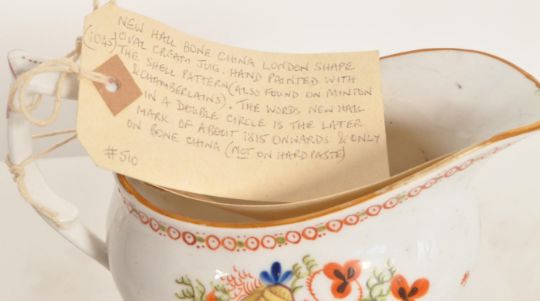 NEW HALL BONE CHINA LONDON SHAPE
OVAL CREAM JUG. HAND PAINTED WITH
THE SHELL PATTERN (ALSO FOUND ON MINTON
& CHAMBERLAINS). THE WORDS NEW HALL
IN A DOUBLE CIRCLE IS THE LATER
MARK OF ABOUT 1815 ONWARDS & ONLY
ON BONE CHINA (NOT ON HARD PASTE)
#510